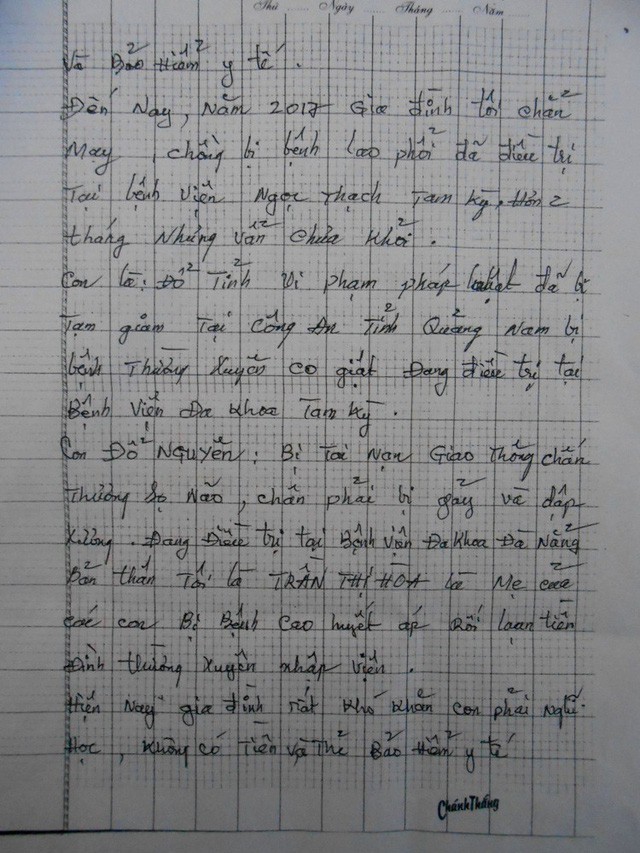 Thứ Ngày Tháng Năm
Và Bảo Hiểm y tế.
Đến Nay, Năm 2017 Gia đình tôi chẳn
May, chồng bị bệnh lao phổi đã điều trị
Tại bệnh viện Ngọc Thạch Tam Kỳ, Hơn 2
tháng Nhưng Vẫn chưa khỏi.
Con là: Đỗ Tình Vi phạm pháp luật đã bị
Tạm giam Tại Công An Tỉnh Quảng Nam bị
bệnh Thường Xuyên co giật Đang điều trị tại
Bệnh Viện Đa khoa Tam Kỳ.
Con Đỗ NGuyễn: Bị Tai Nạn Giao Thông chấn
Thương Sọ Não, chân phải bị gãy và dập
Xương. Đang Điều trị tại Bệnh viện Đa Khoa Đà Nẵng
Bản thân Tôi là TRẦN THỊ HOA là Mẹ của
các con Bị Bệnh Cao huyết áp Rối loạn tiền
Đình thường Xuyên nhập viện.
Hiện Nay gia đình rất khó khăn con phải nghỉ
Học, không có Tiền và Thẻ Bảo Hiểm y tế
Chánh Thắng